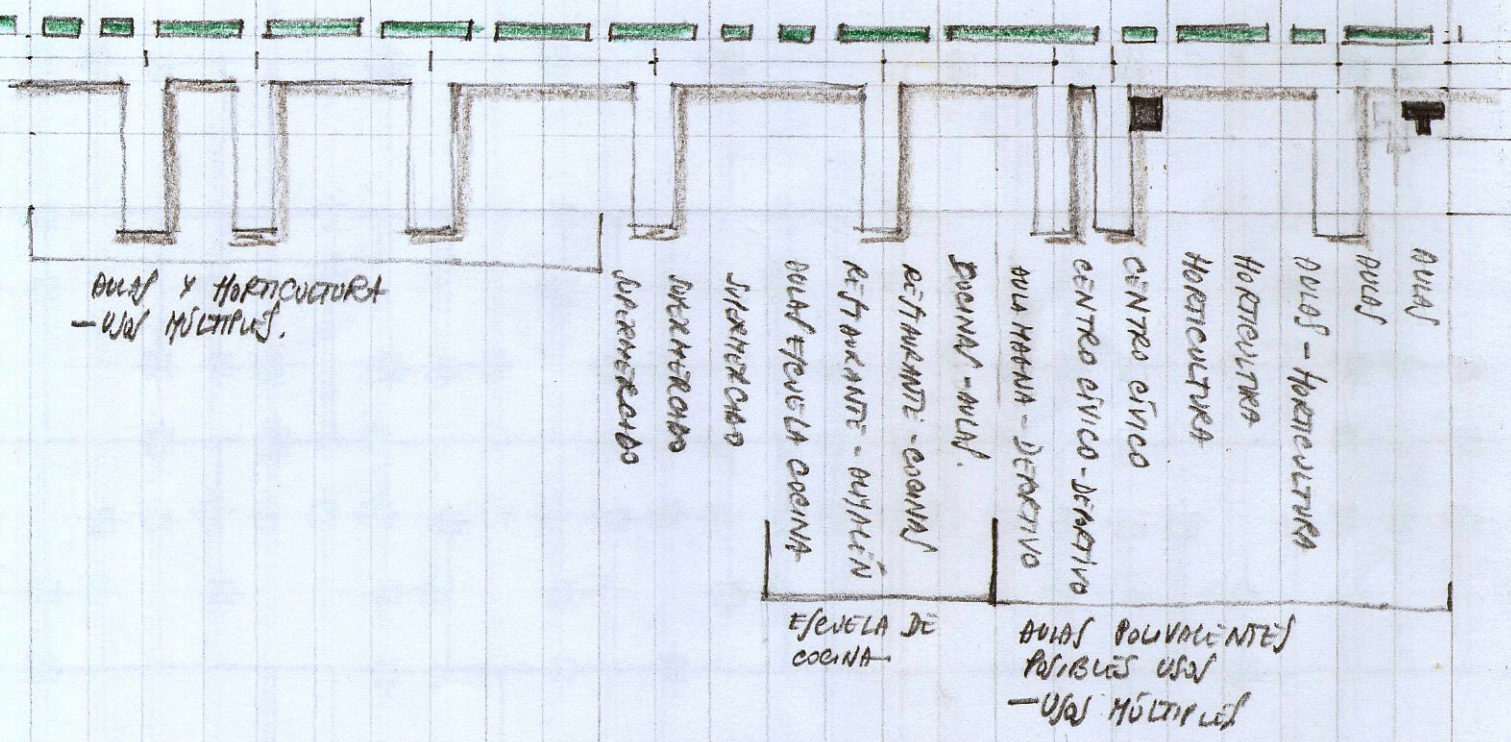 AULAS Y HORTICULTURA
- USOS MÚLTIPLES.
SUPERMERCADO
SUPERMERCADO
SUPERMERCADO
AULAS ESCUELA COCINA
RESTAURANTE - ALMACÉN
RESTAURANTE - COCINAS
COCINAS - AULAS.
AULA MAGNA - DEPORTIVO
CENTRO CÍVICO - DEPORTIVO
CENTRO CÍVICO
HORTICULTURA
HORTICULTURA
AULAS - HORTICULTURA
AULAS
AULAS
ESCUELA DE
COCINA
AULAS POLIVALENTES
POSIBLES USOS
- USOS MÚLTIPLES